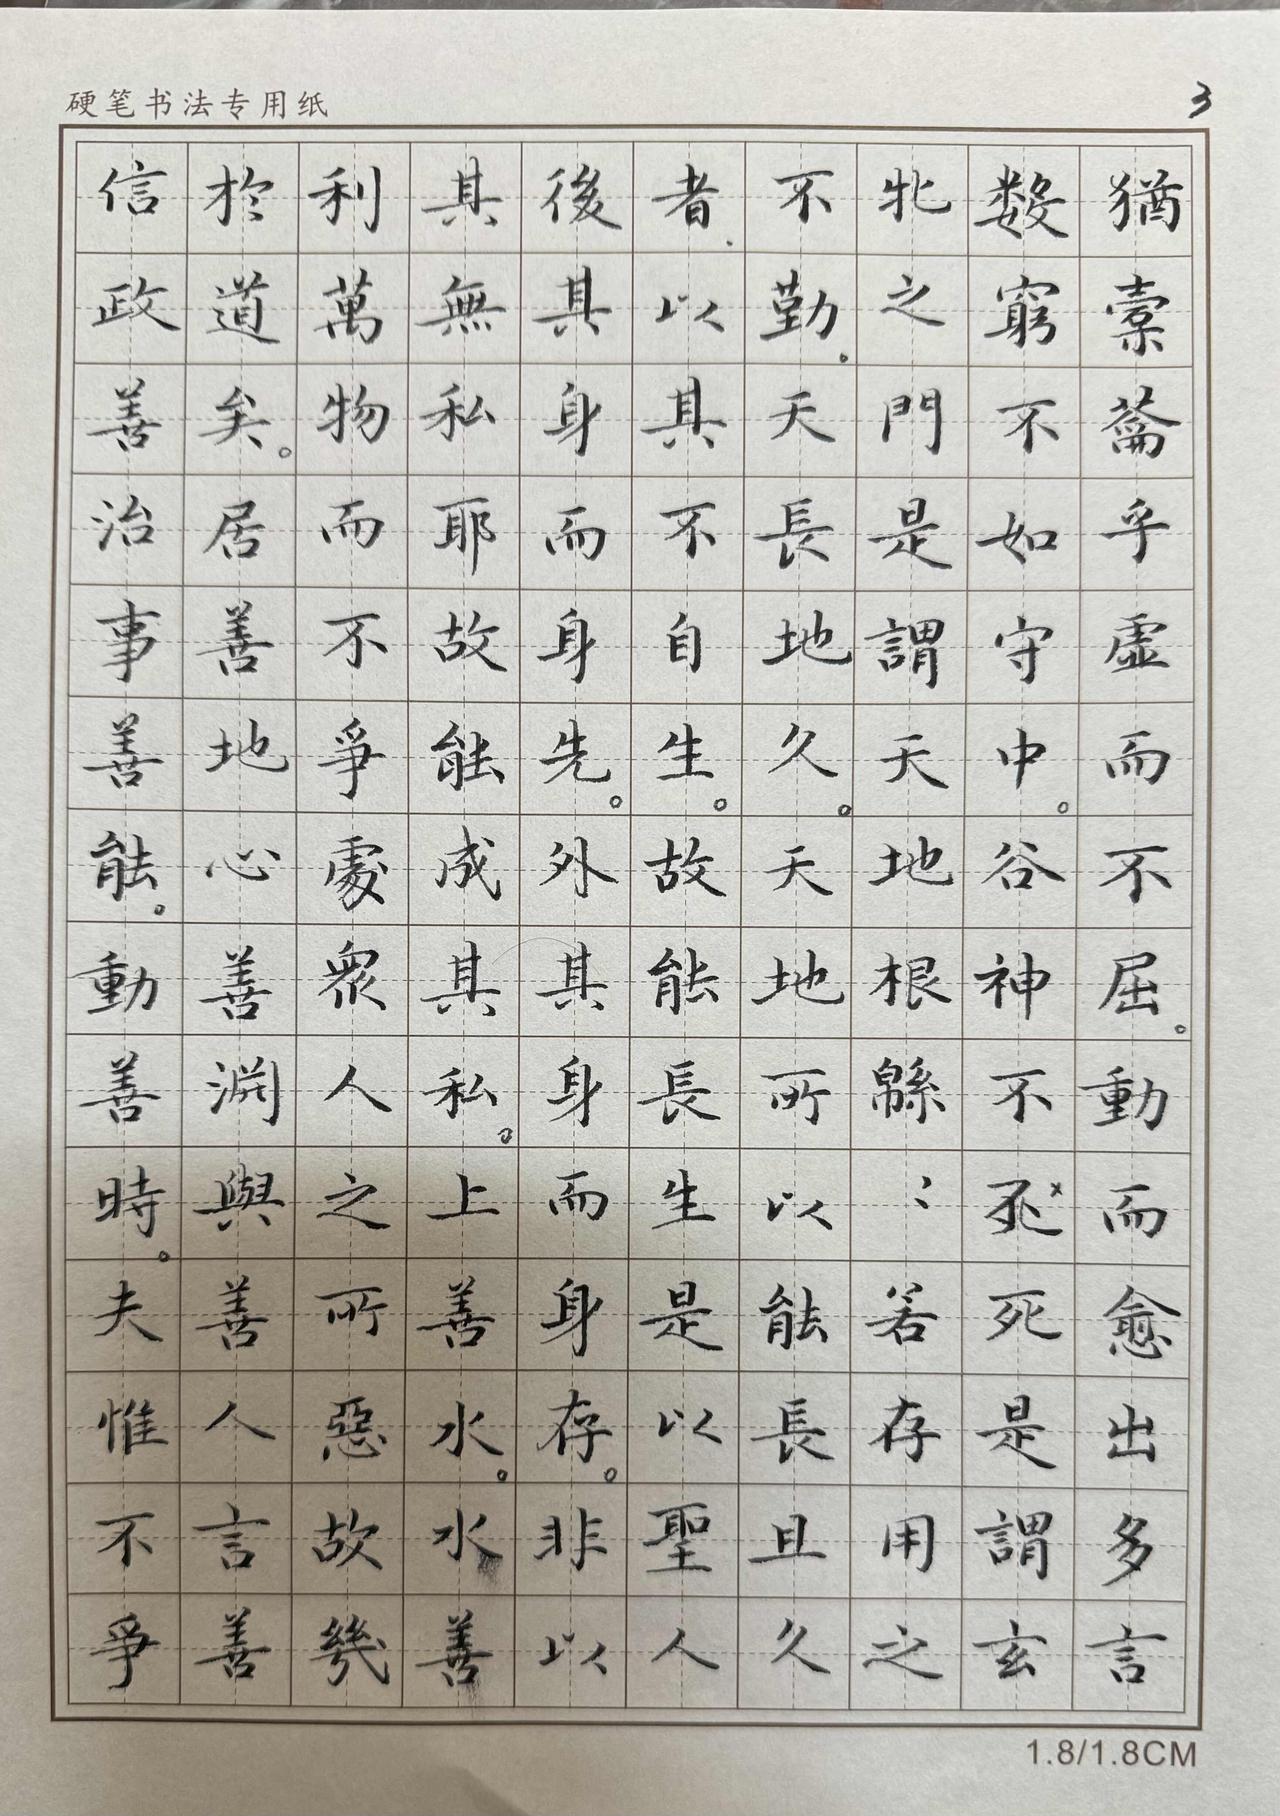 硬笔书法专用纸
3
猶橐蘥乎虛而不屈。動而愈出多言
數窮不如守中。谷神不死死是謂玄
牝之門是謂天地根緜〻若存用之
不勤。天長地久。天地所以能長且久
者以其不自生。故能長生是以聖人
後其身而身先。外其身而身存。非以
其無私耶故能成其私。上善水。水善
利萬物而不爭處衆人之所惡故幾
於道矣。居善地心善淵與善人言善
信政善治事善能。動善時。夫惟不爭
1.8/1.8CM